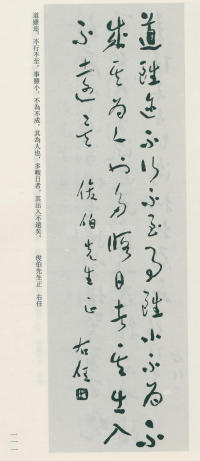 道雖邇不行不至事雖小不為不
成其為人也多暇日者其出入
不遠矣 俊伯先生正 右任
道雖邇,不行不至。事雖小,不為不成。其為人也,多暇日者,其出入不遠矣。 俊伯先生正 右任
一一一